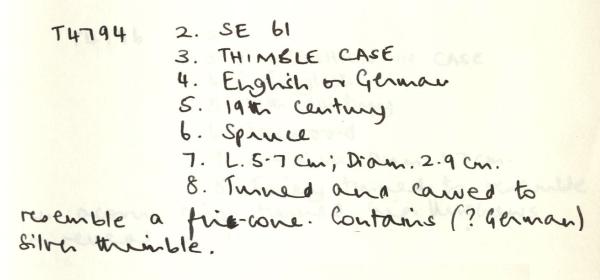 T4794 2. SE 61
3. THIMBLE CASE
4. English or German
5. 19th century
6. Spruce
7. L. 5.7 cm; Diam. 2.9 cm.
8. Turned and carved to
resemble a fir-cone. Contains (? German)
silver thimble.